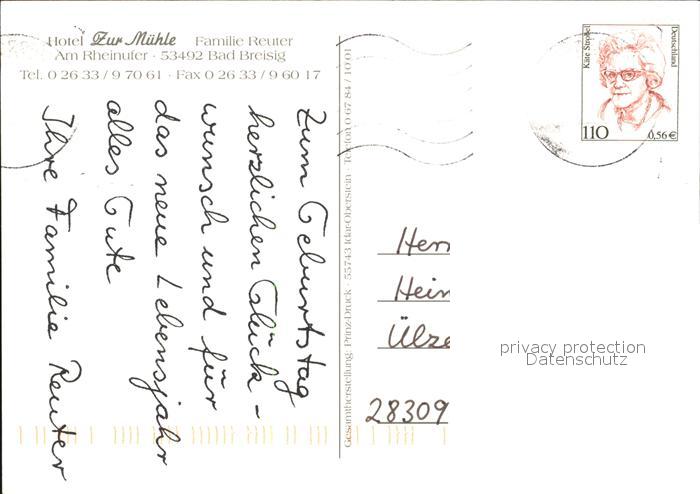 Hotel Zur Mühle Familie Reuter
Am Rheinufer · 53492 Bad Breisig
Tel. 0 26 33 / 9 70 61 · Fax 0 26 33 / 9 60 17
Zum Geburtstag
herzlichen Glück-
wunsch und für
das neue Lebensjahr
alles Gute
Ihre Familie Reuter
Gesamtherstellung: Prinz-Druck · 55743 Idar-Oberstein · Telefon 0 67 84 / 10 01
Käte Strobel
Deutschland
110
0,56 €
Herr
Hein
Ülze
28309
privacy protection
Datenschutz